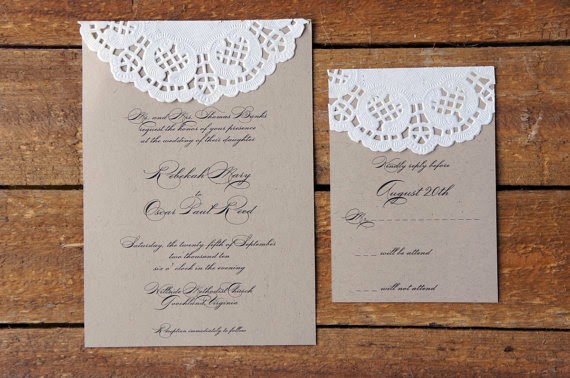 Mr. and Mrs. Thomas Banks
request the honor of your presence
at the wedding of their daughter
Rebekah Mary
to
Oscar Paul Reed
Saturday, the twenty fifth of September
two thousand ten
six o' clock in the evening
Hillside Methodist Church
Goochland, Virginia
Reception immediately to follow
Kindly reply before
August 20th
M
will be attend
will not attend